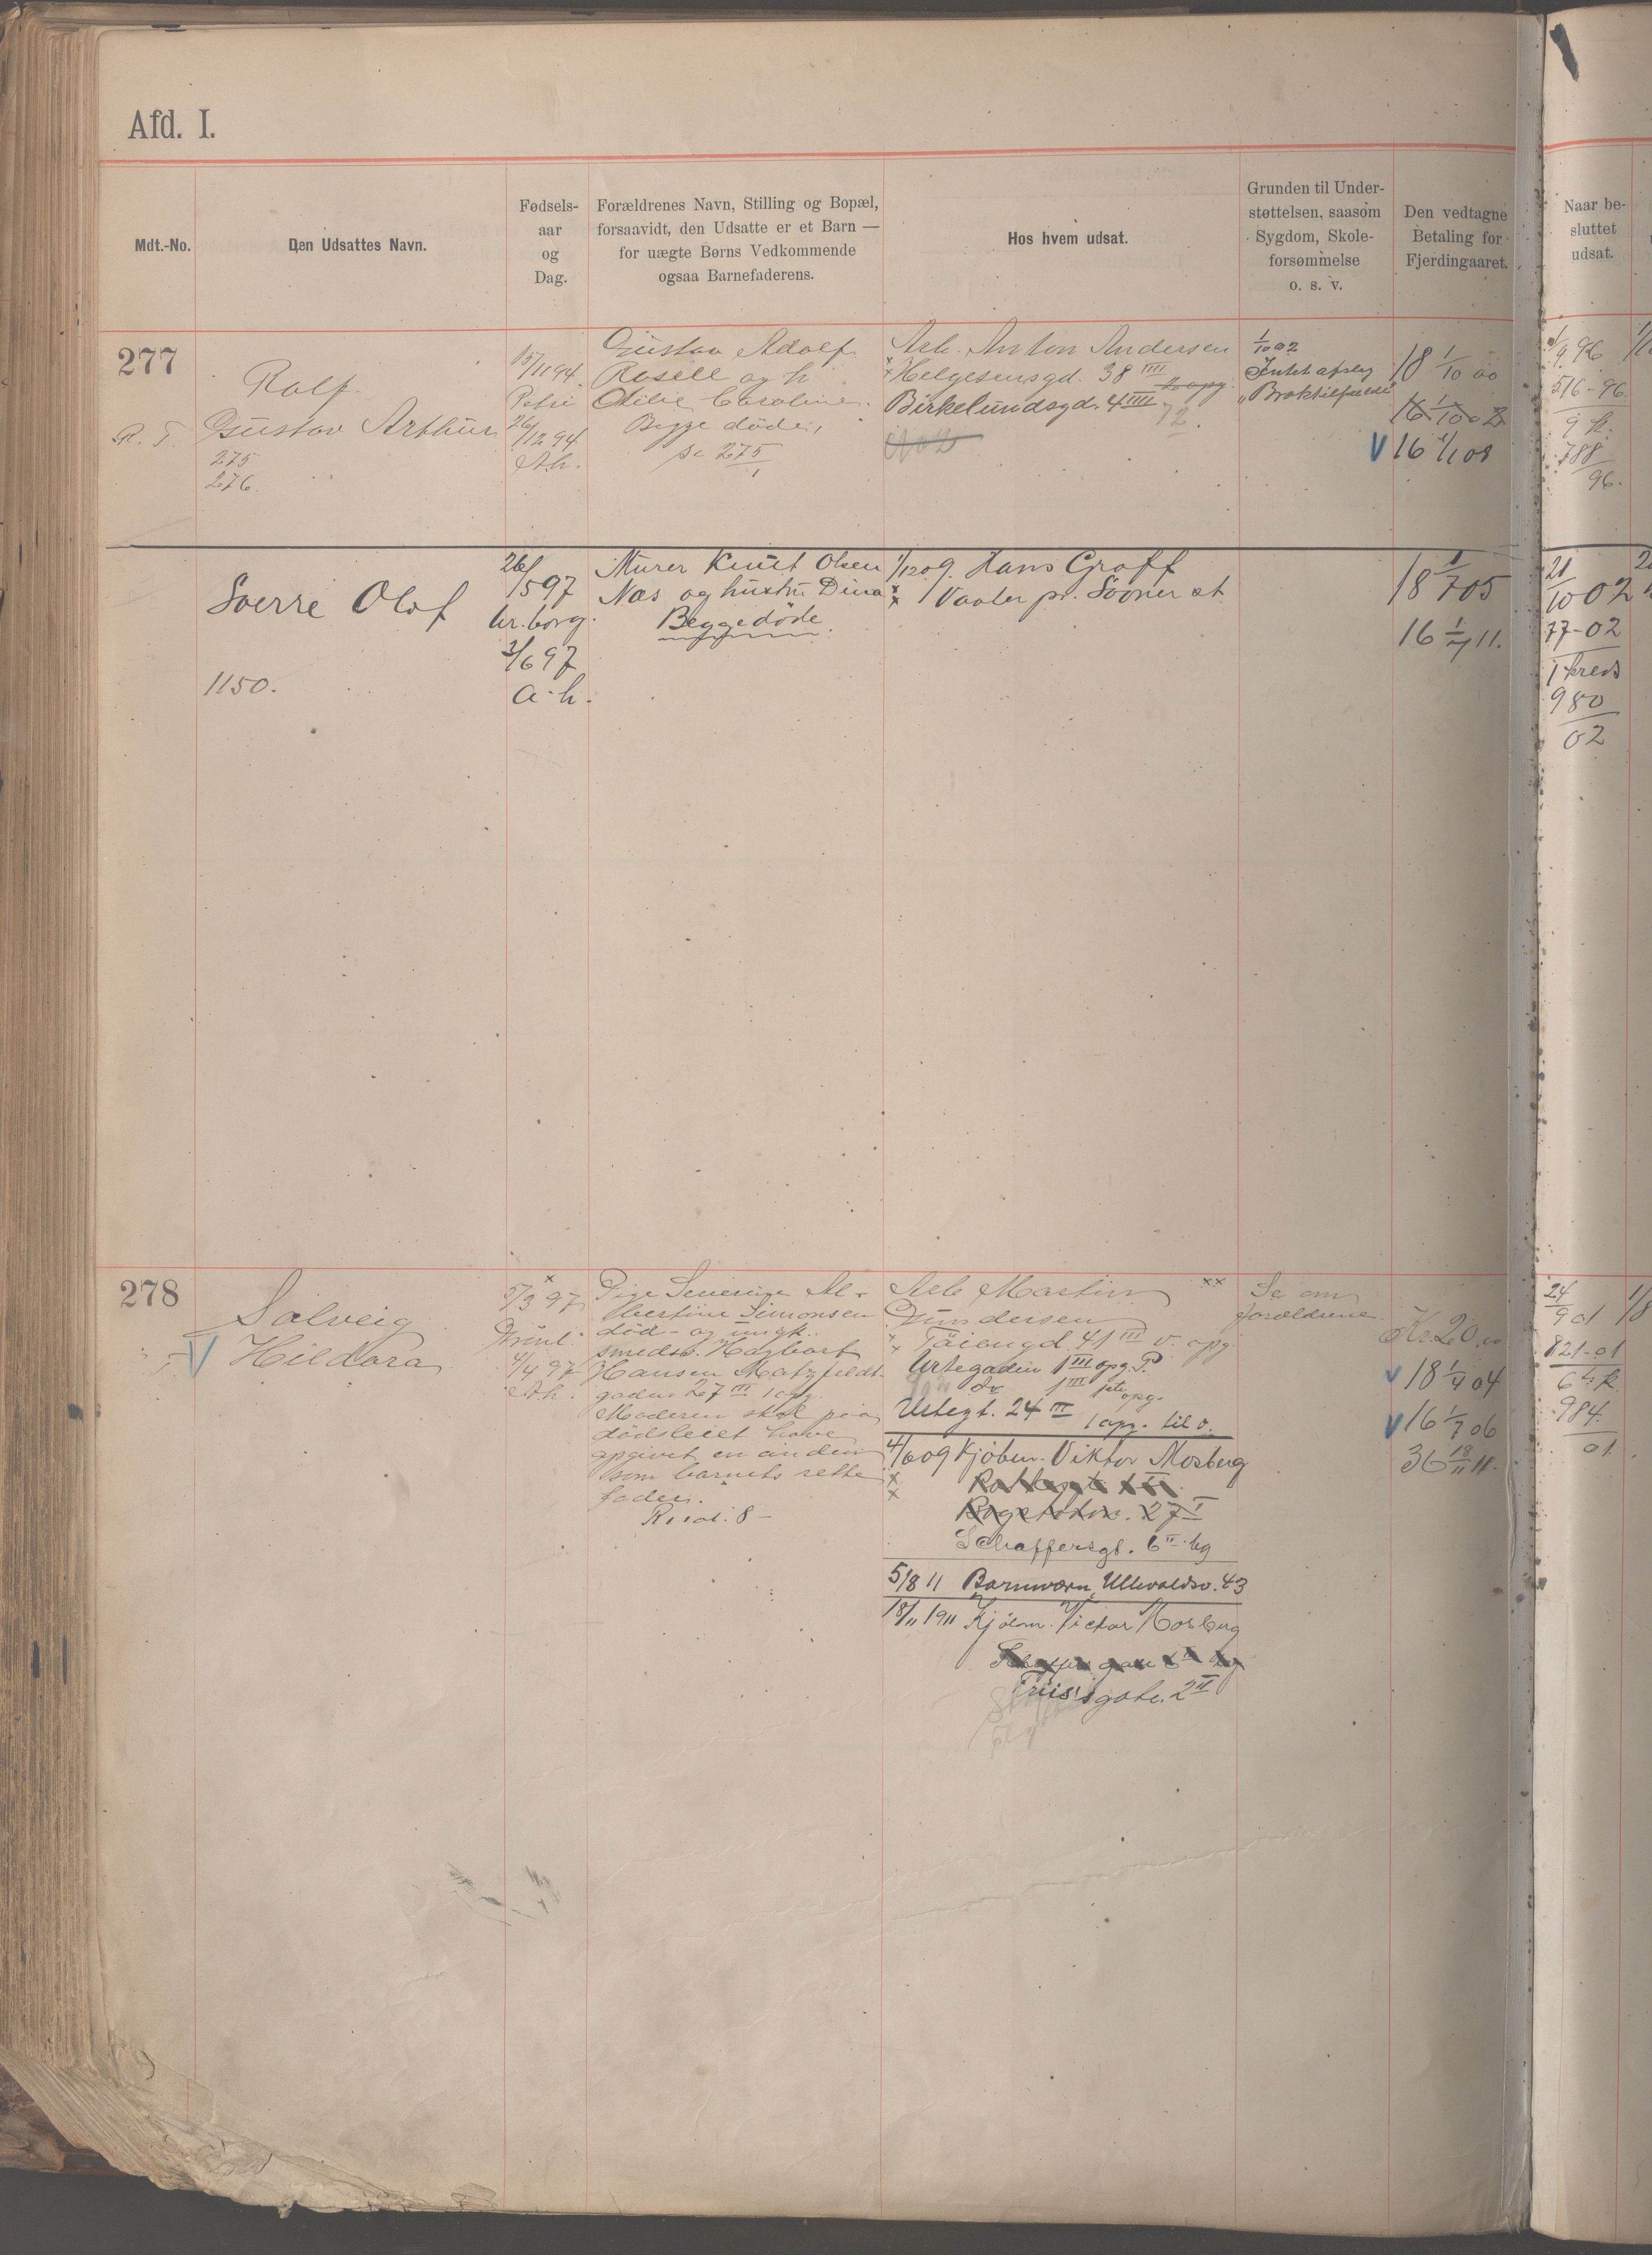 Afd. I.
Mdt.-No.
Den Udsattes Navn.
Fødsels-
aar
og
Dag.
Forældrenes Navn, Stilling og Bopæl,
forsaavidt, den Udsatte er et Barn —
for uægte Børns Vedkommende
ogsaa Barnefaderens.
Hos hvem udsat.
Grunden til Under-
støttelsen, saasom
Sygdom, Skole-
forsømmelse
o. s. v.
Den vedtagne
Betaling for
Fjerdingaaret.
Naar be-
sluttet
udsat.
277
Rolf
Gustav Arthur
R. T.
275
276.
15/11 94.
Petri
26/12 94
A.h.
Gustav Adolf
Rosell og h.
Otilie Caroline.
Begge døde,
se 275
Arb. Anton Andersen
Helgesensgd. 38 IIII
Birkelundsgd. 4 IIII
1/10 02
Intet afslag
18 1/10 00
16 1/10 02
V 16 1/1 08
1/9 96
516-96
9 k.
788
96.
Sverre Olof
1150.
26/5 97
Ur.borg.
3/6 97
a-h.
Murer Knut Olsen
Næs og hustru Dina
Begge døde.
1/12 09. Hans Groff
Vaaler pr. Sooner st
18 1/7 05
16 1/7 11.
21/10 02
77-02
1 kreds
980
02
278
Solveig
Hildora
V
5/3 97
Grønl.
4/4 97
A.h.
Pige Severine Al-
bertine Simonsen
død - og ungk.
smedsv. Hagbart
Hansen Matzfeldt-
gaden 27 III 1 opg.
Moderen skal paa
dødsleiet have
opgivet en anden
som barnets rette
fader.
Arb Martin
Gundersen
Tøiengd. 41 III v. opg
Urtegaden 1 III opg. P
do 1 III
Urtegt. 24 III
1 opg. til v.
4/6 09 Kjøbm. Viktor Mosberg
27 I
Schaffersgt. 6 II hg
5/8 11 Barnværn, Ullevoldsv. 43
18/11 1911 Kjøbm. Victor Mosberg
Friis'sgate. 2 II
Se om
forældrene
Kr. 20,00
V 18 1/4 04
V 16 1/7 06
36 18/11 11.
24/9 01
821-01
6 k.
984.
01.